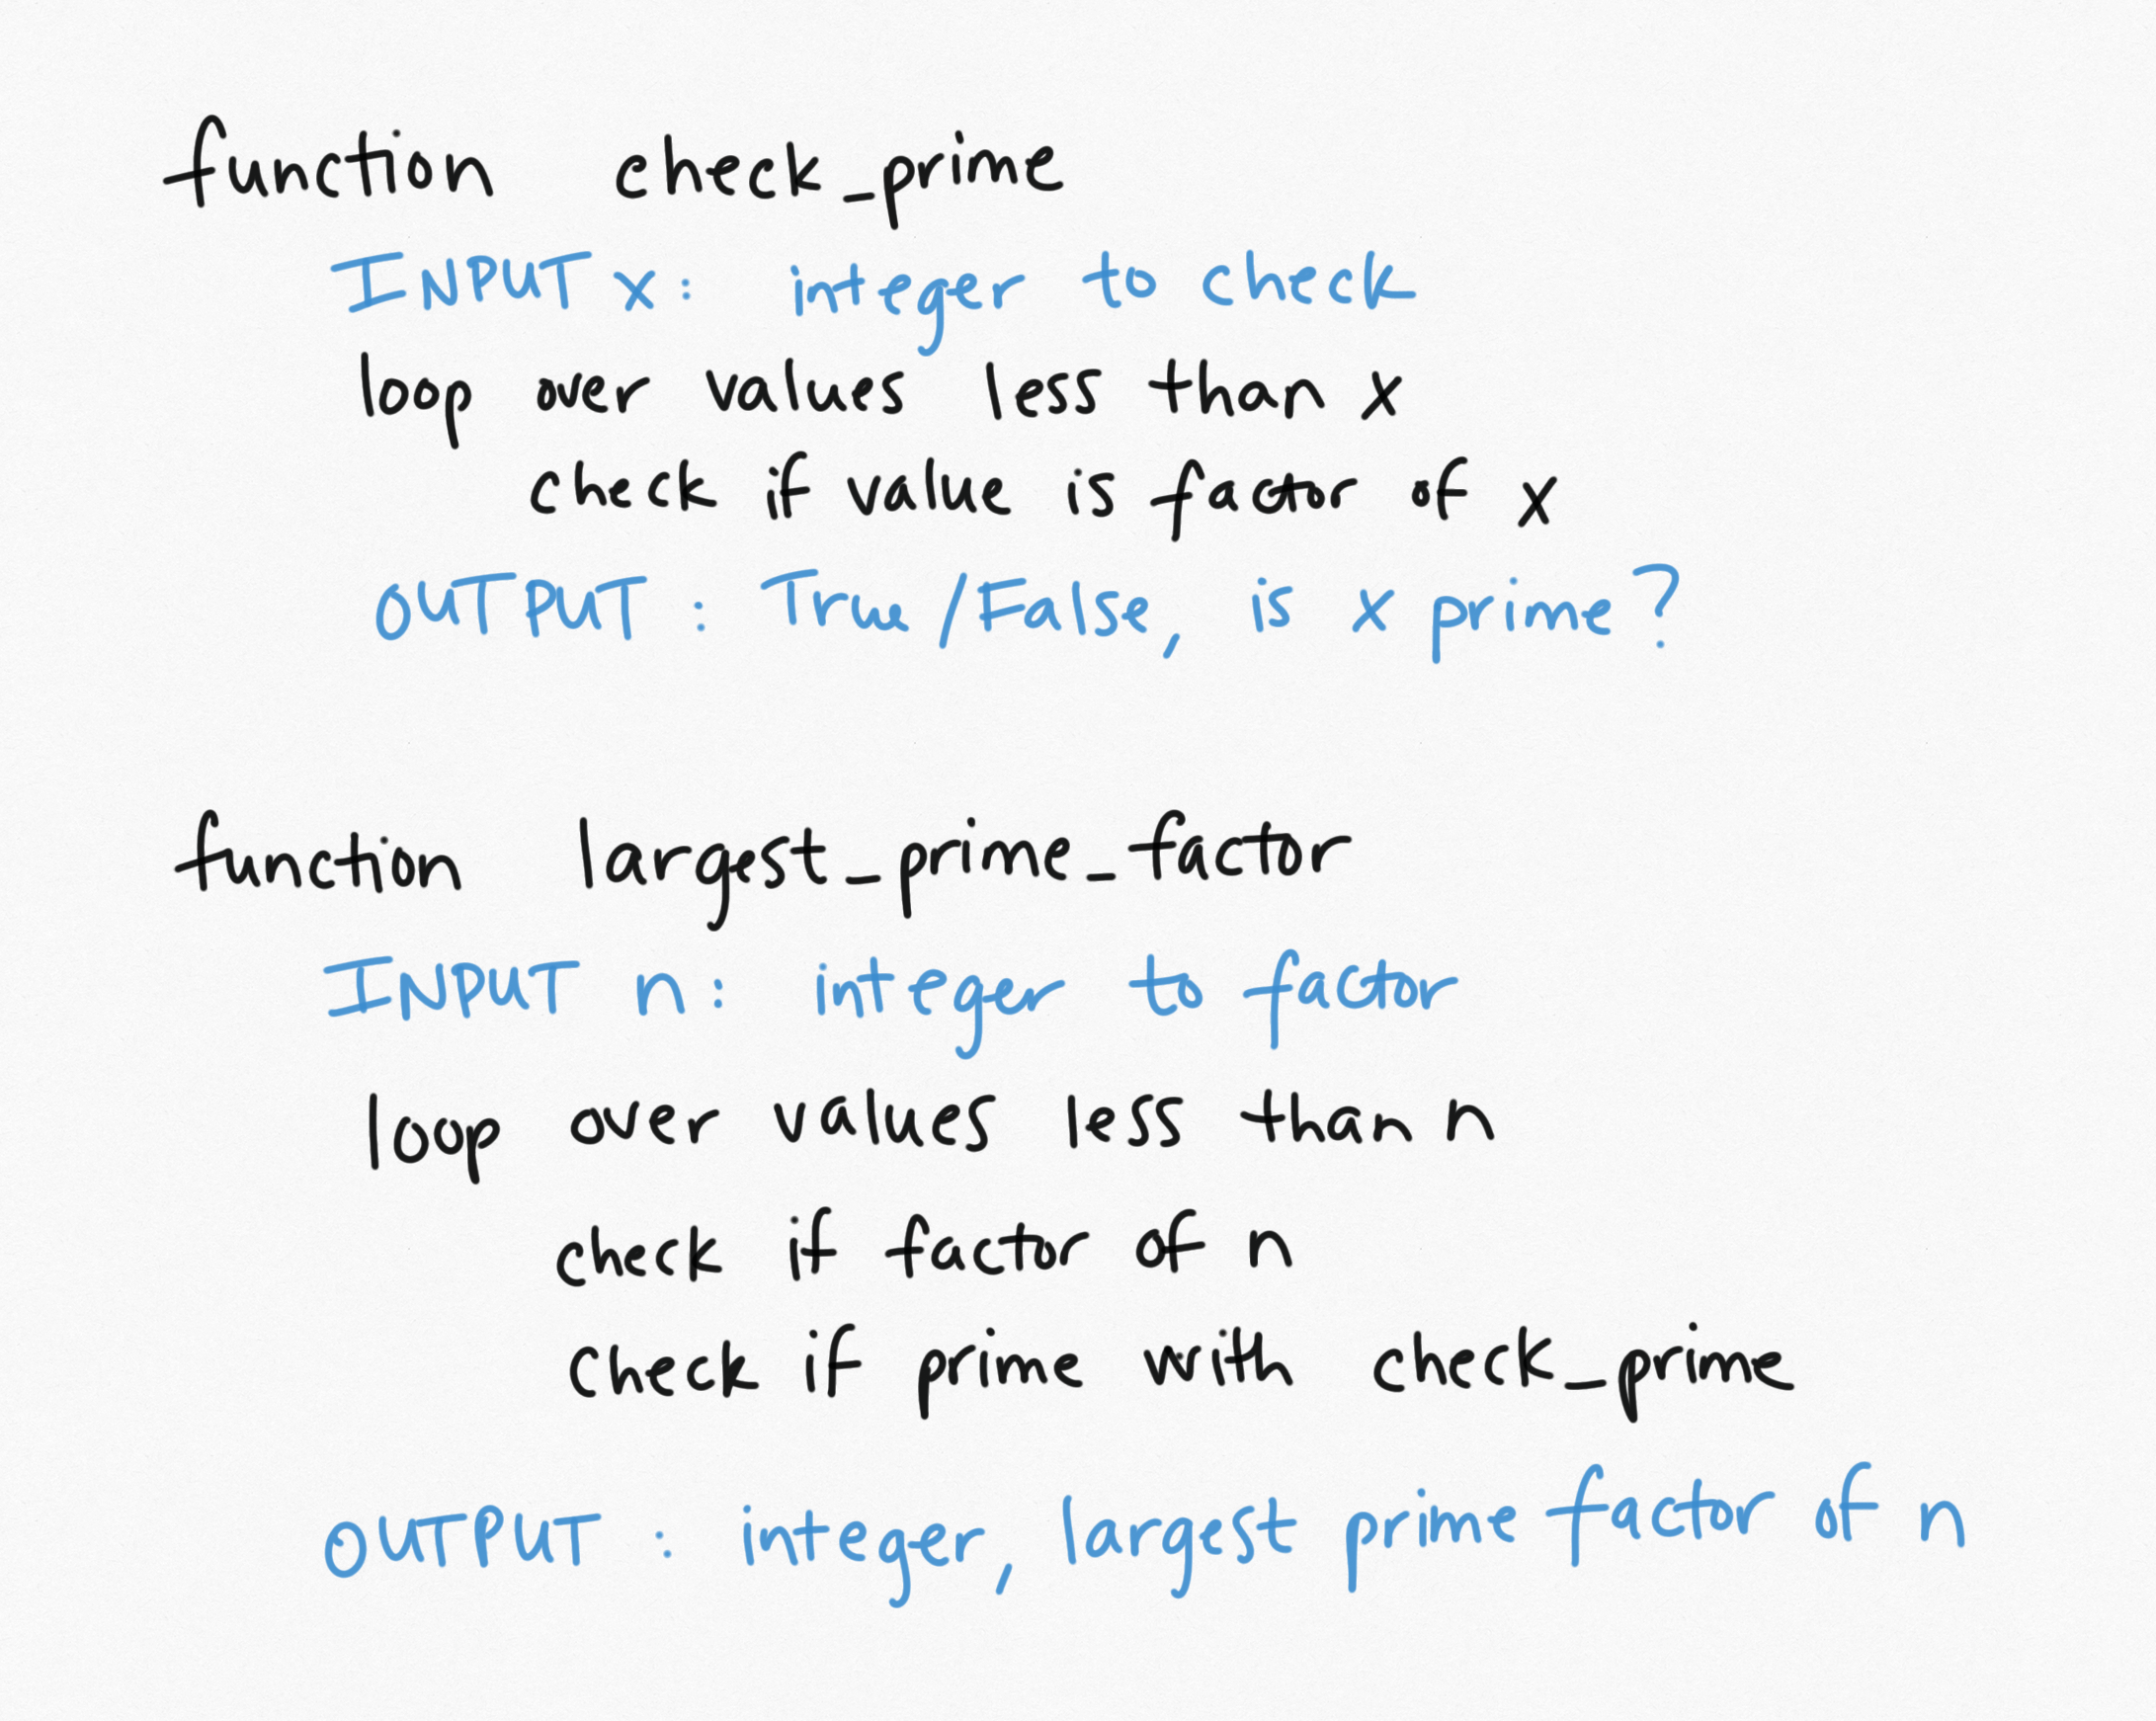 function check_prime
INPUT x: integer to check
loop over values less than x
check if value is factor of x
OUTPUT : True/False, is x prime?
function largest_prime_factor
INPUT n: integer to factor
loop over values less than n
check if factor of n
check if prime with check_prime
OUTPUT : integer, largest prime factor of n